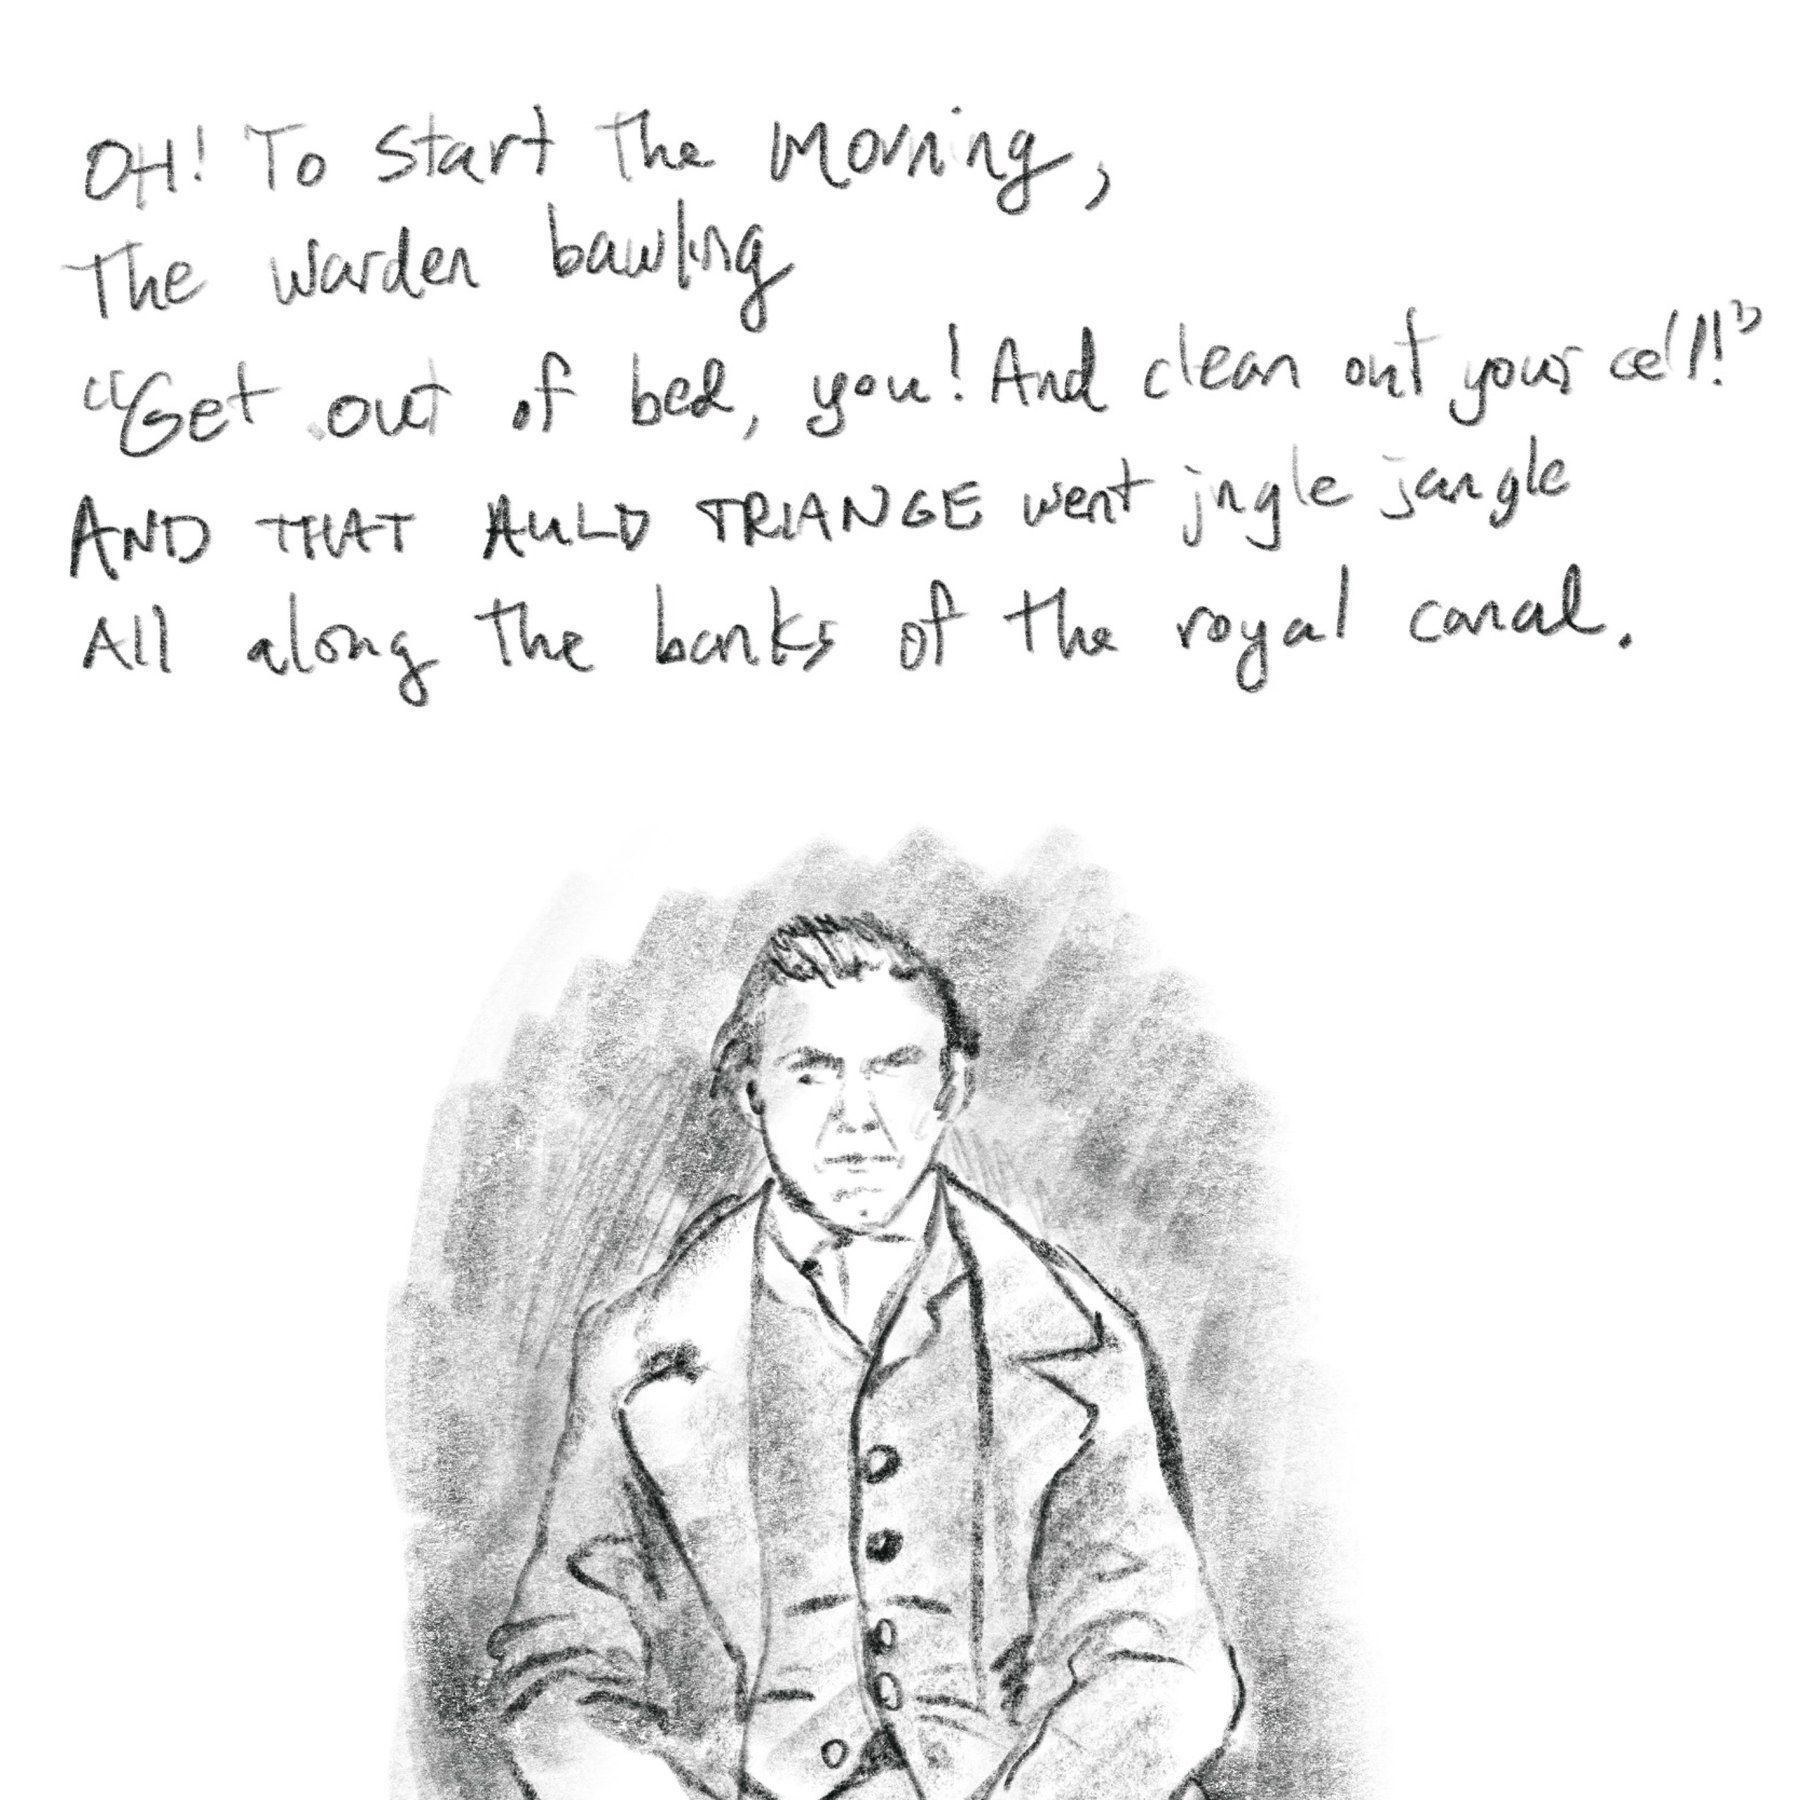 OH! To Start The Morning,
The Warden bawling
"Get out of bed, you! And clean out your cell!"
AND THAT AULD TRIANGE went jngle jangle
All along the banks of the royal canal.